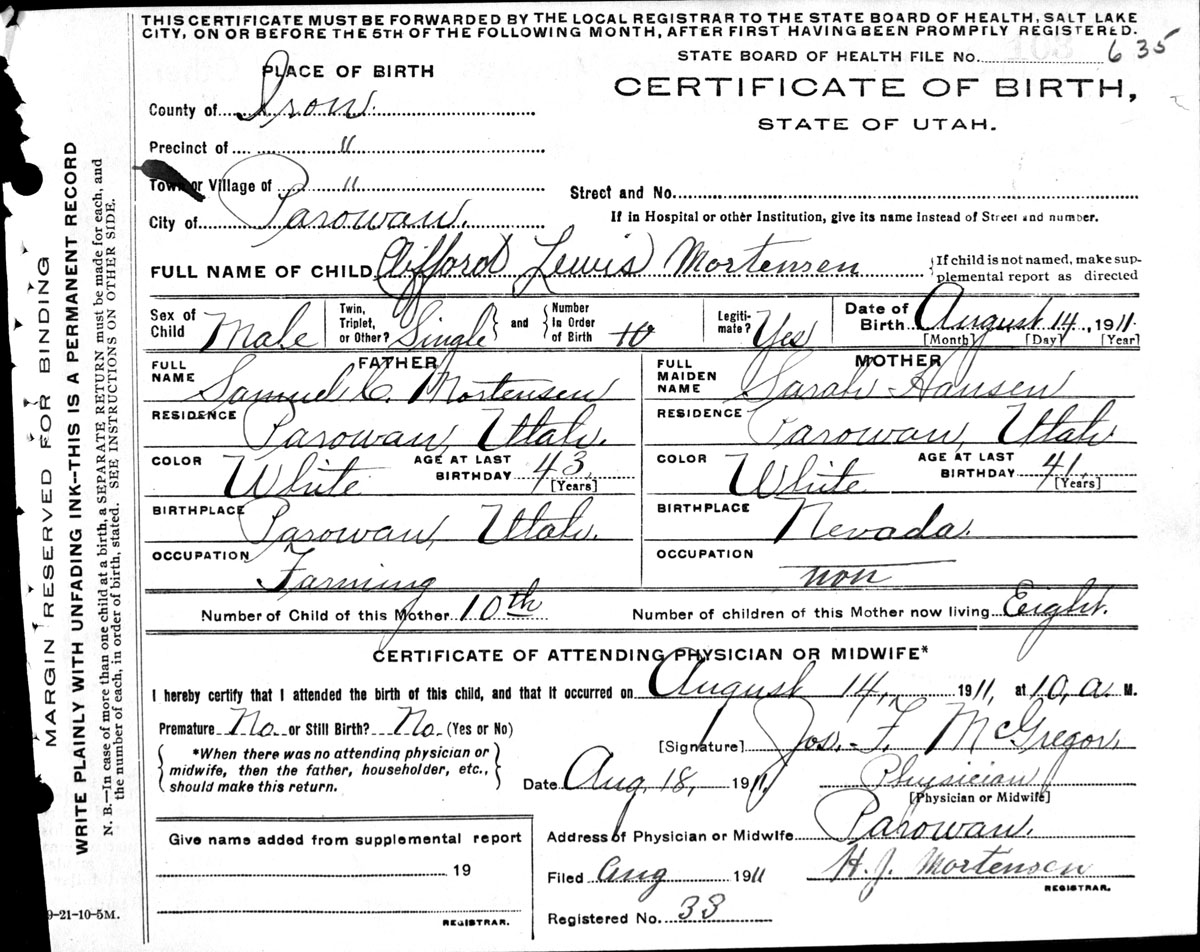 THIS CERTIFICATE MUST BE FORWARDED BY THE LOCAL REGISTRAR TO THE STATE BOARD OF HEALTH, SALT LAKE
CITY, ON OR BEFORE THE 5TH OF THE FOLLOWING MONTH, AFTER FIRST HAVING BEEN PROMPTLY REGISTERED.
STATE BOARD OF HEALTH FILE No. 635
PLACE OF BIRTH
CERTIFICATE OF BIRTH,
County of Iron.
STATE OF UTAH.
Precinct of "
Town or Village of "
Street and No.
City of Parowan.
If in Hospital or other Institution, give its name instead of Street and number.
FULL NAME OF CHILD Clifford Lewis Mortensen
{If child is not named, make sup-
plemental report as directed
Sex of Child Male
Twin, Triplet, or Other? Single} and {Number In Order of Birth 10
Legiti-mate? Yes
Date of Birth August 14, 1911.
[Month] [Day] [Year]
FATHER
FULL NAME Samuel C. Mortensen
MOTHER
FULL MAIDEN NAME Sarah Hansen
RESIDENCE Parowan, Utah.
RESIDENCE Parowan, Utah
COLOR White AGE AT LAST BIRTHDAY 43 [Years]
COLOR White AGE AT LAST BIRTHDAY 41 [Years]
BIRTHPLACE Parowan, Utah.
BIRTHPLACE Nevada.
OCCUPATION Farming
OCCUPATION non
Number of Child of this Mother 10th
Number of children of this Mother now living Eight.
CERTIFICATE OF ATTENDING PHYSICIAN OR MIDWIFE*
I hereby certify that I attended the birth of this child, and that it occurred on August 14, 1911, at 10, a. M.
Premature No. or Still Birth? No. (Yes or No)
[Signature] Jos. F. McGregor.
{*When there was no attending physician or
midwife, then the father, householder, etc.,
should make this return.}
Date Aug, 18, 1911,
Physician
[Physician or Midwife]
Address of Physician or Midwife Parowan.
Give name added from supplemental report
19
REGISTRAR.
Filed Aug 1911
H. J. Mortensen
REGISTRAR.
Registered No. 33
9-21-10-5M.
MARGIN RESERVED FOR BINDING
WRITE PLAINLY WITH UNFADING INK--THIS IS A PERMANENT RECORD
N. B.—In case of more than one child at a birth, a SEPARATE RETURN must be made for each, and
the number of each, in order of birth, stated. SEE INSTRUCTIONS ON OTHER SIDE.